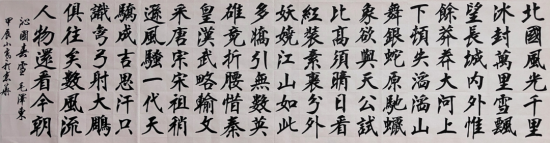 北國風光千里
冰封萬里雪飄
望長城內外惟
餘莽莽大河上
下頓失滔滔山
舞銀蛇原馳蠟
象欲與天公試
比高須晴日看
紅裝素裹分外
妖嬈江山如此
多嬌引無數英
雄競折腰惜秦
皇漢武略輸文
采唐宗宋祖稍
遜風騷一代天
驕成吉思汗只
識彎弓射大鵰
俱往矣數風流
人物還看今朝
沁園春雪 毛澤東
甲辰小